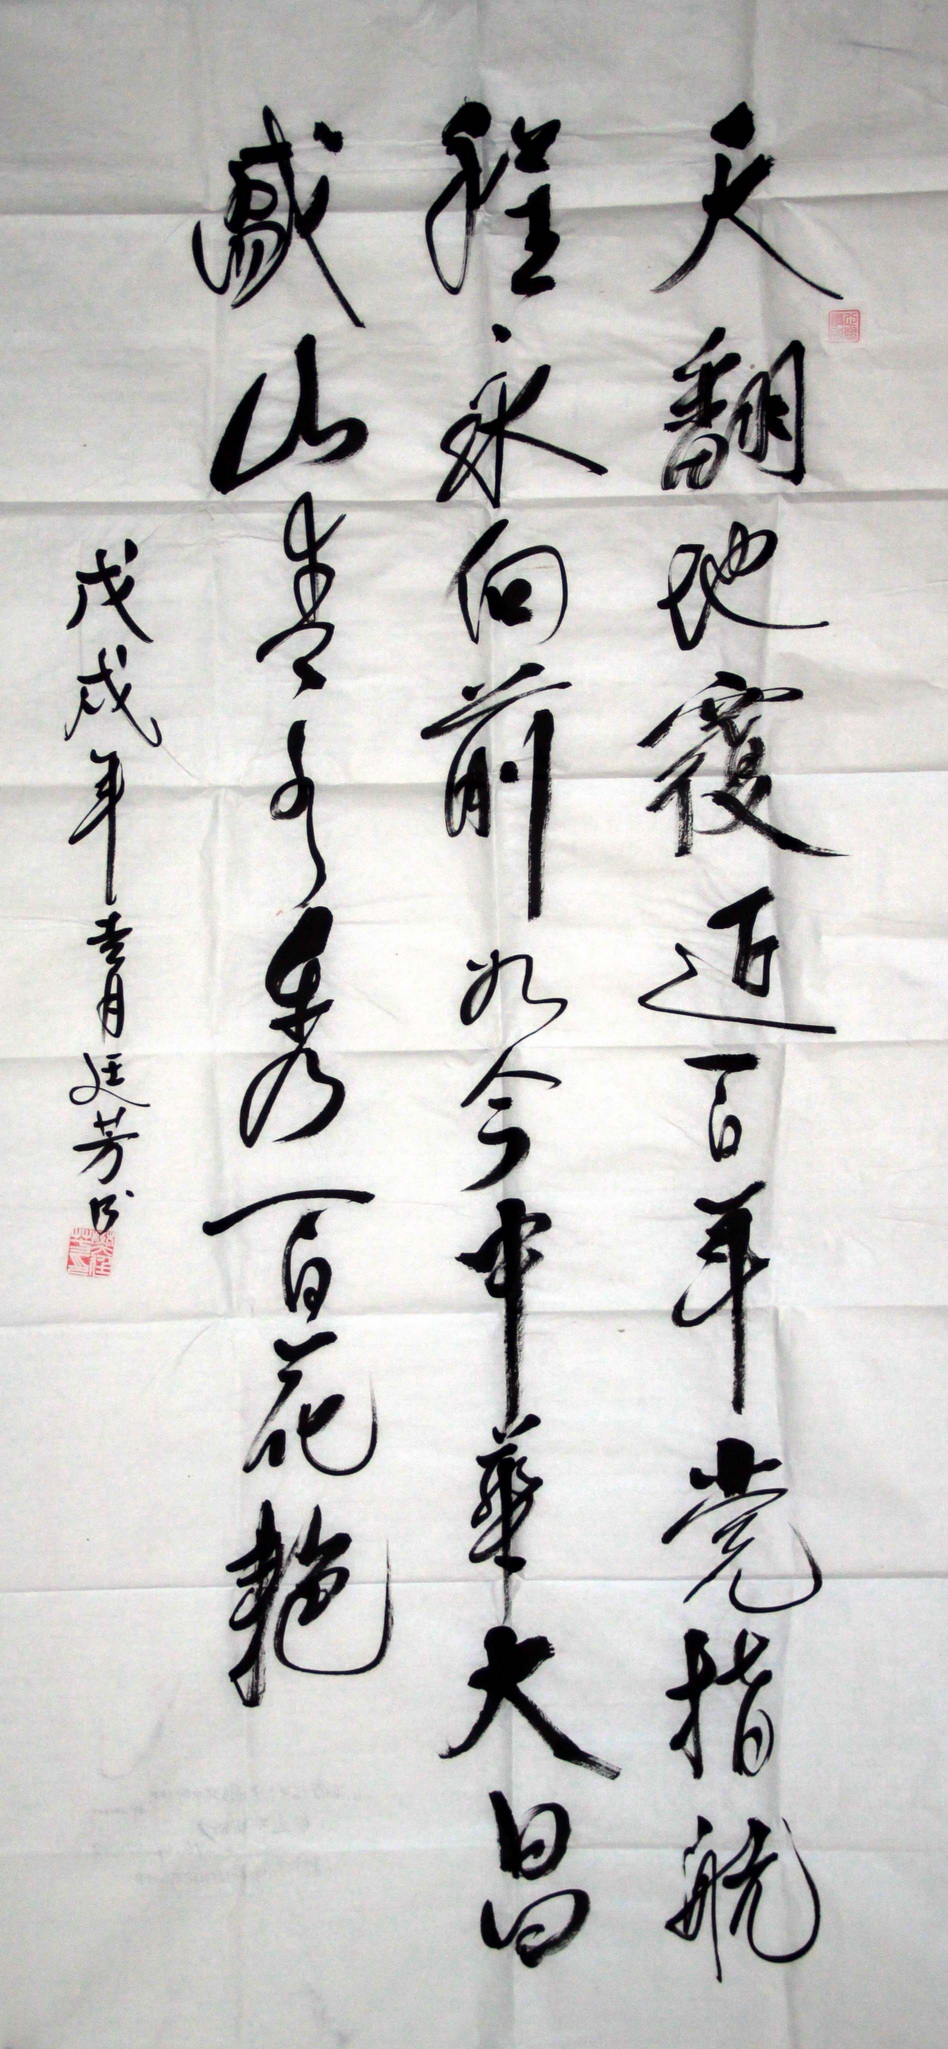 天翻地覆近百年党指航
程永向前如今中华大昌
盛山青水秀百花艳
戊戌年青月廷芳书